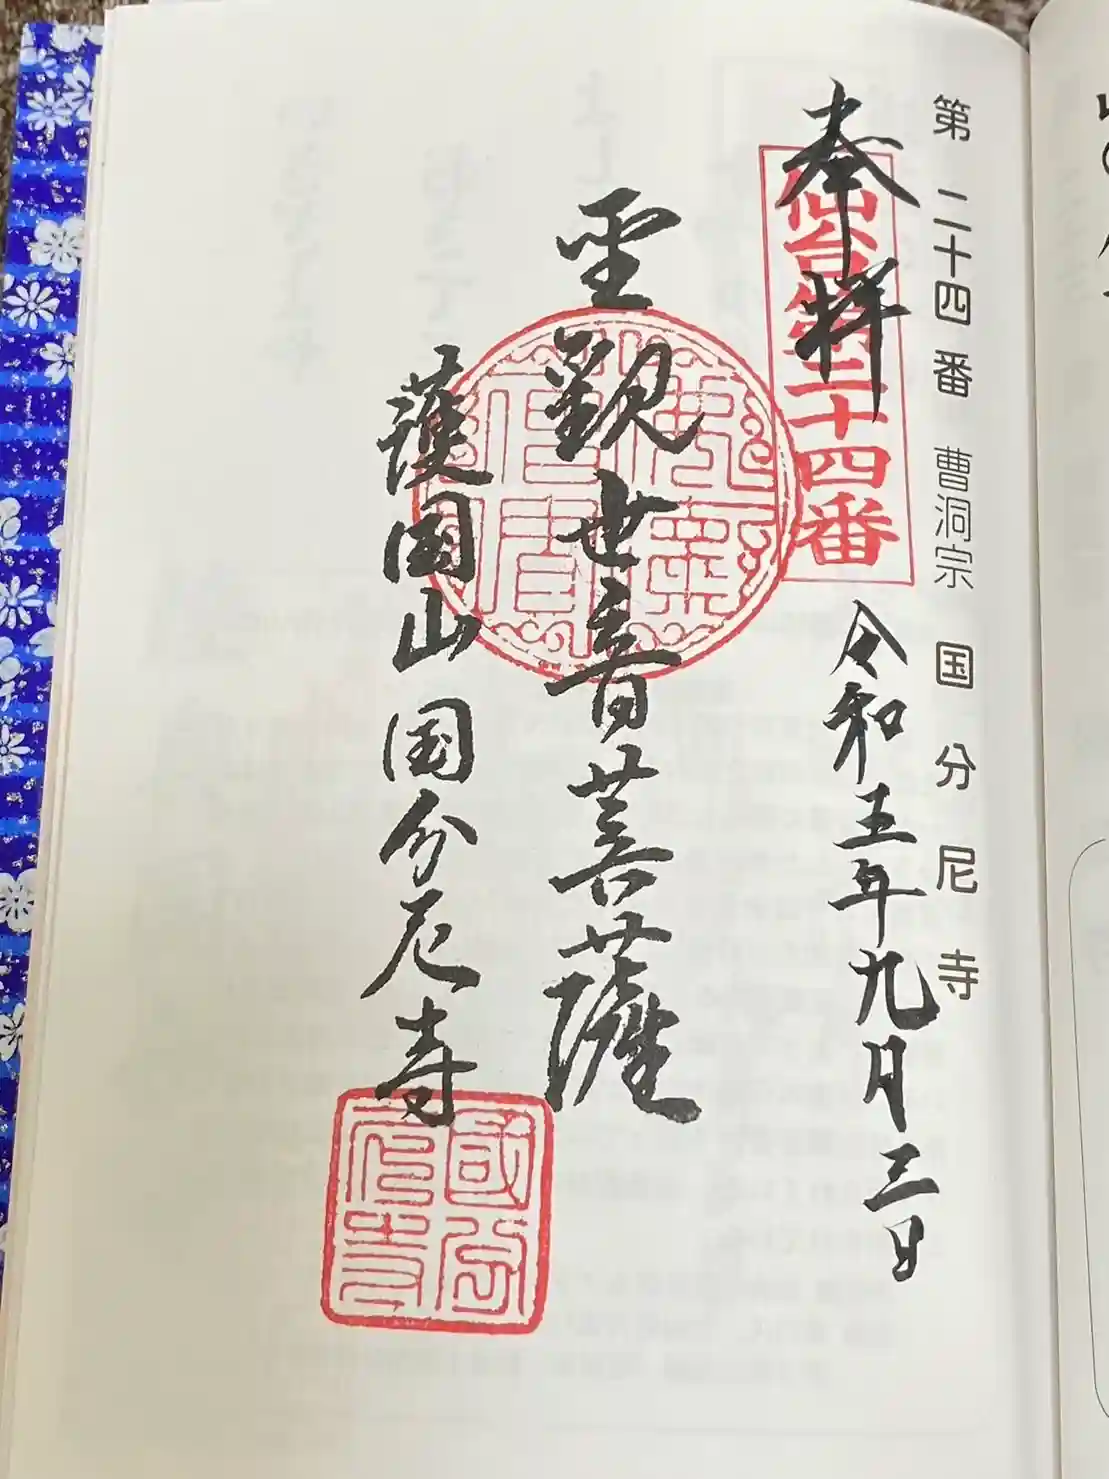 第二十四番 曹洞宗 国分尼寺
奉拝
仙台第二十四番
令和五年九月三日
聖観世音菩薩
護国山 国分尼寺
國分尼寺